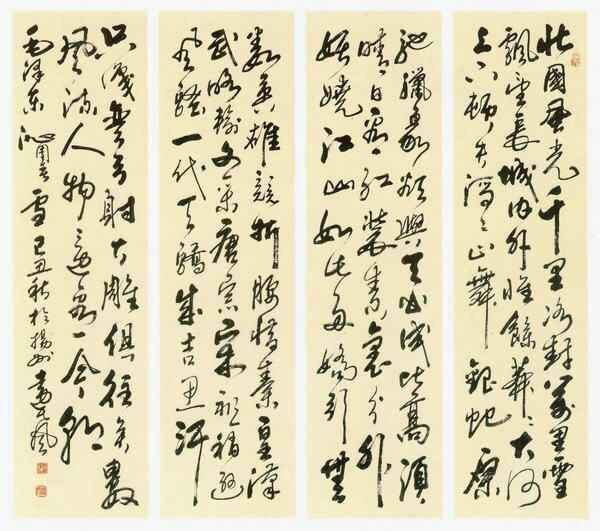 北國風光千里冰封萬里雪
飄望長城內外惟餘莽莽大河
上下頓失滔滔山舞銀蛇原
馳蠟象欲與天公試比高須
晴日看紅裝素裹分外
妖嬈江山如此多嬌引無
數英雄競折腰惜秦皇漢
武略輸文采唐宗宋祖稍遜
風騷一代天驕成吉思汗
只識彎弓射大雕俱往矣數
風流人物還看今朝
毛澤東沁園春雪己丑秋於揚州